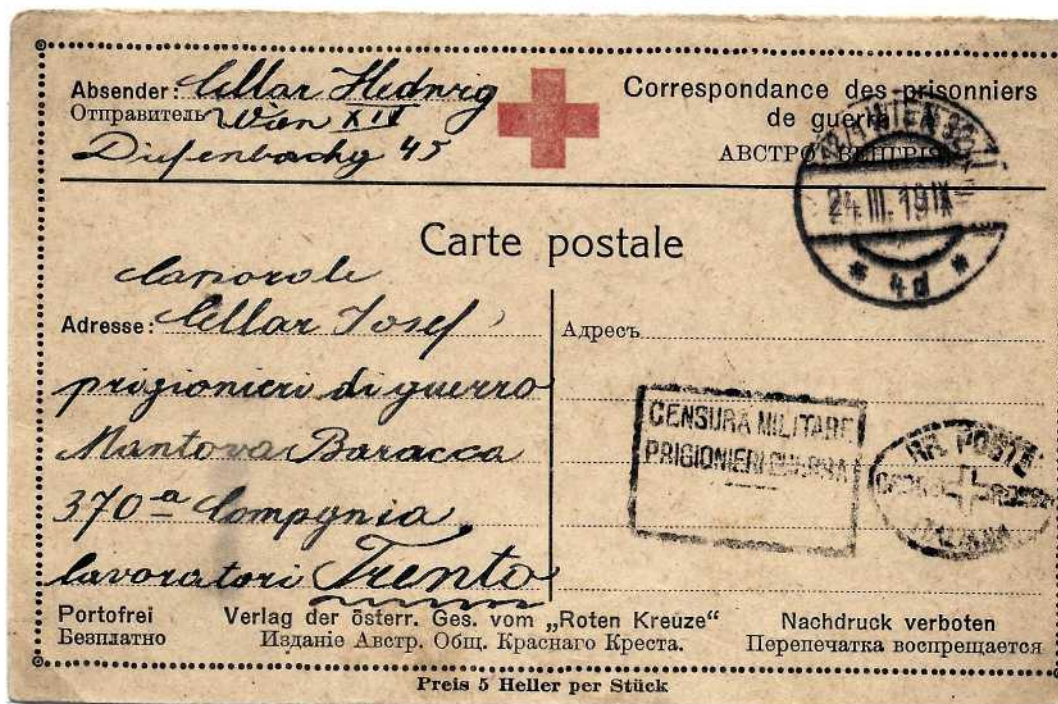 Absender: Cellar Hedwig
Отправитель Wien XIV
Diefenbachg 45
Correspondance des prisonniers
de guerre
АВСТРО ВЕНГРІЯ
WIEN
24.III.19 IX
* 4d *
Carte postale
Adresse: Cellar Josef
prigionieri di guerro
Mantova Baracca
370-a Compynia
lavoratori Trento
Адресъ
CENSURA MILITARE
PRIGIONIERI GUERRA
RR. POSTE
Portofrei
Безплатно
Verlag der österr. Ges. vom „Roten Kreuze“
Изданіе Австр. Общ. Краснаго Креста.
Nachdruck verboten
Перепечатка воспрещается
Preis 5 Heller per Stück